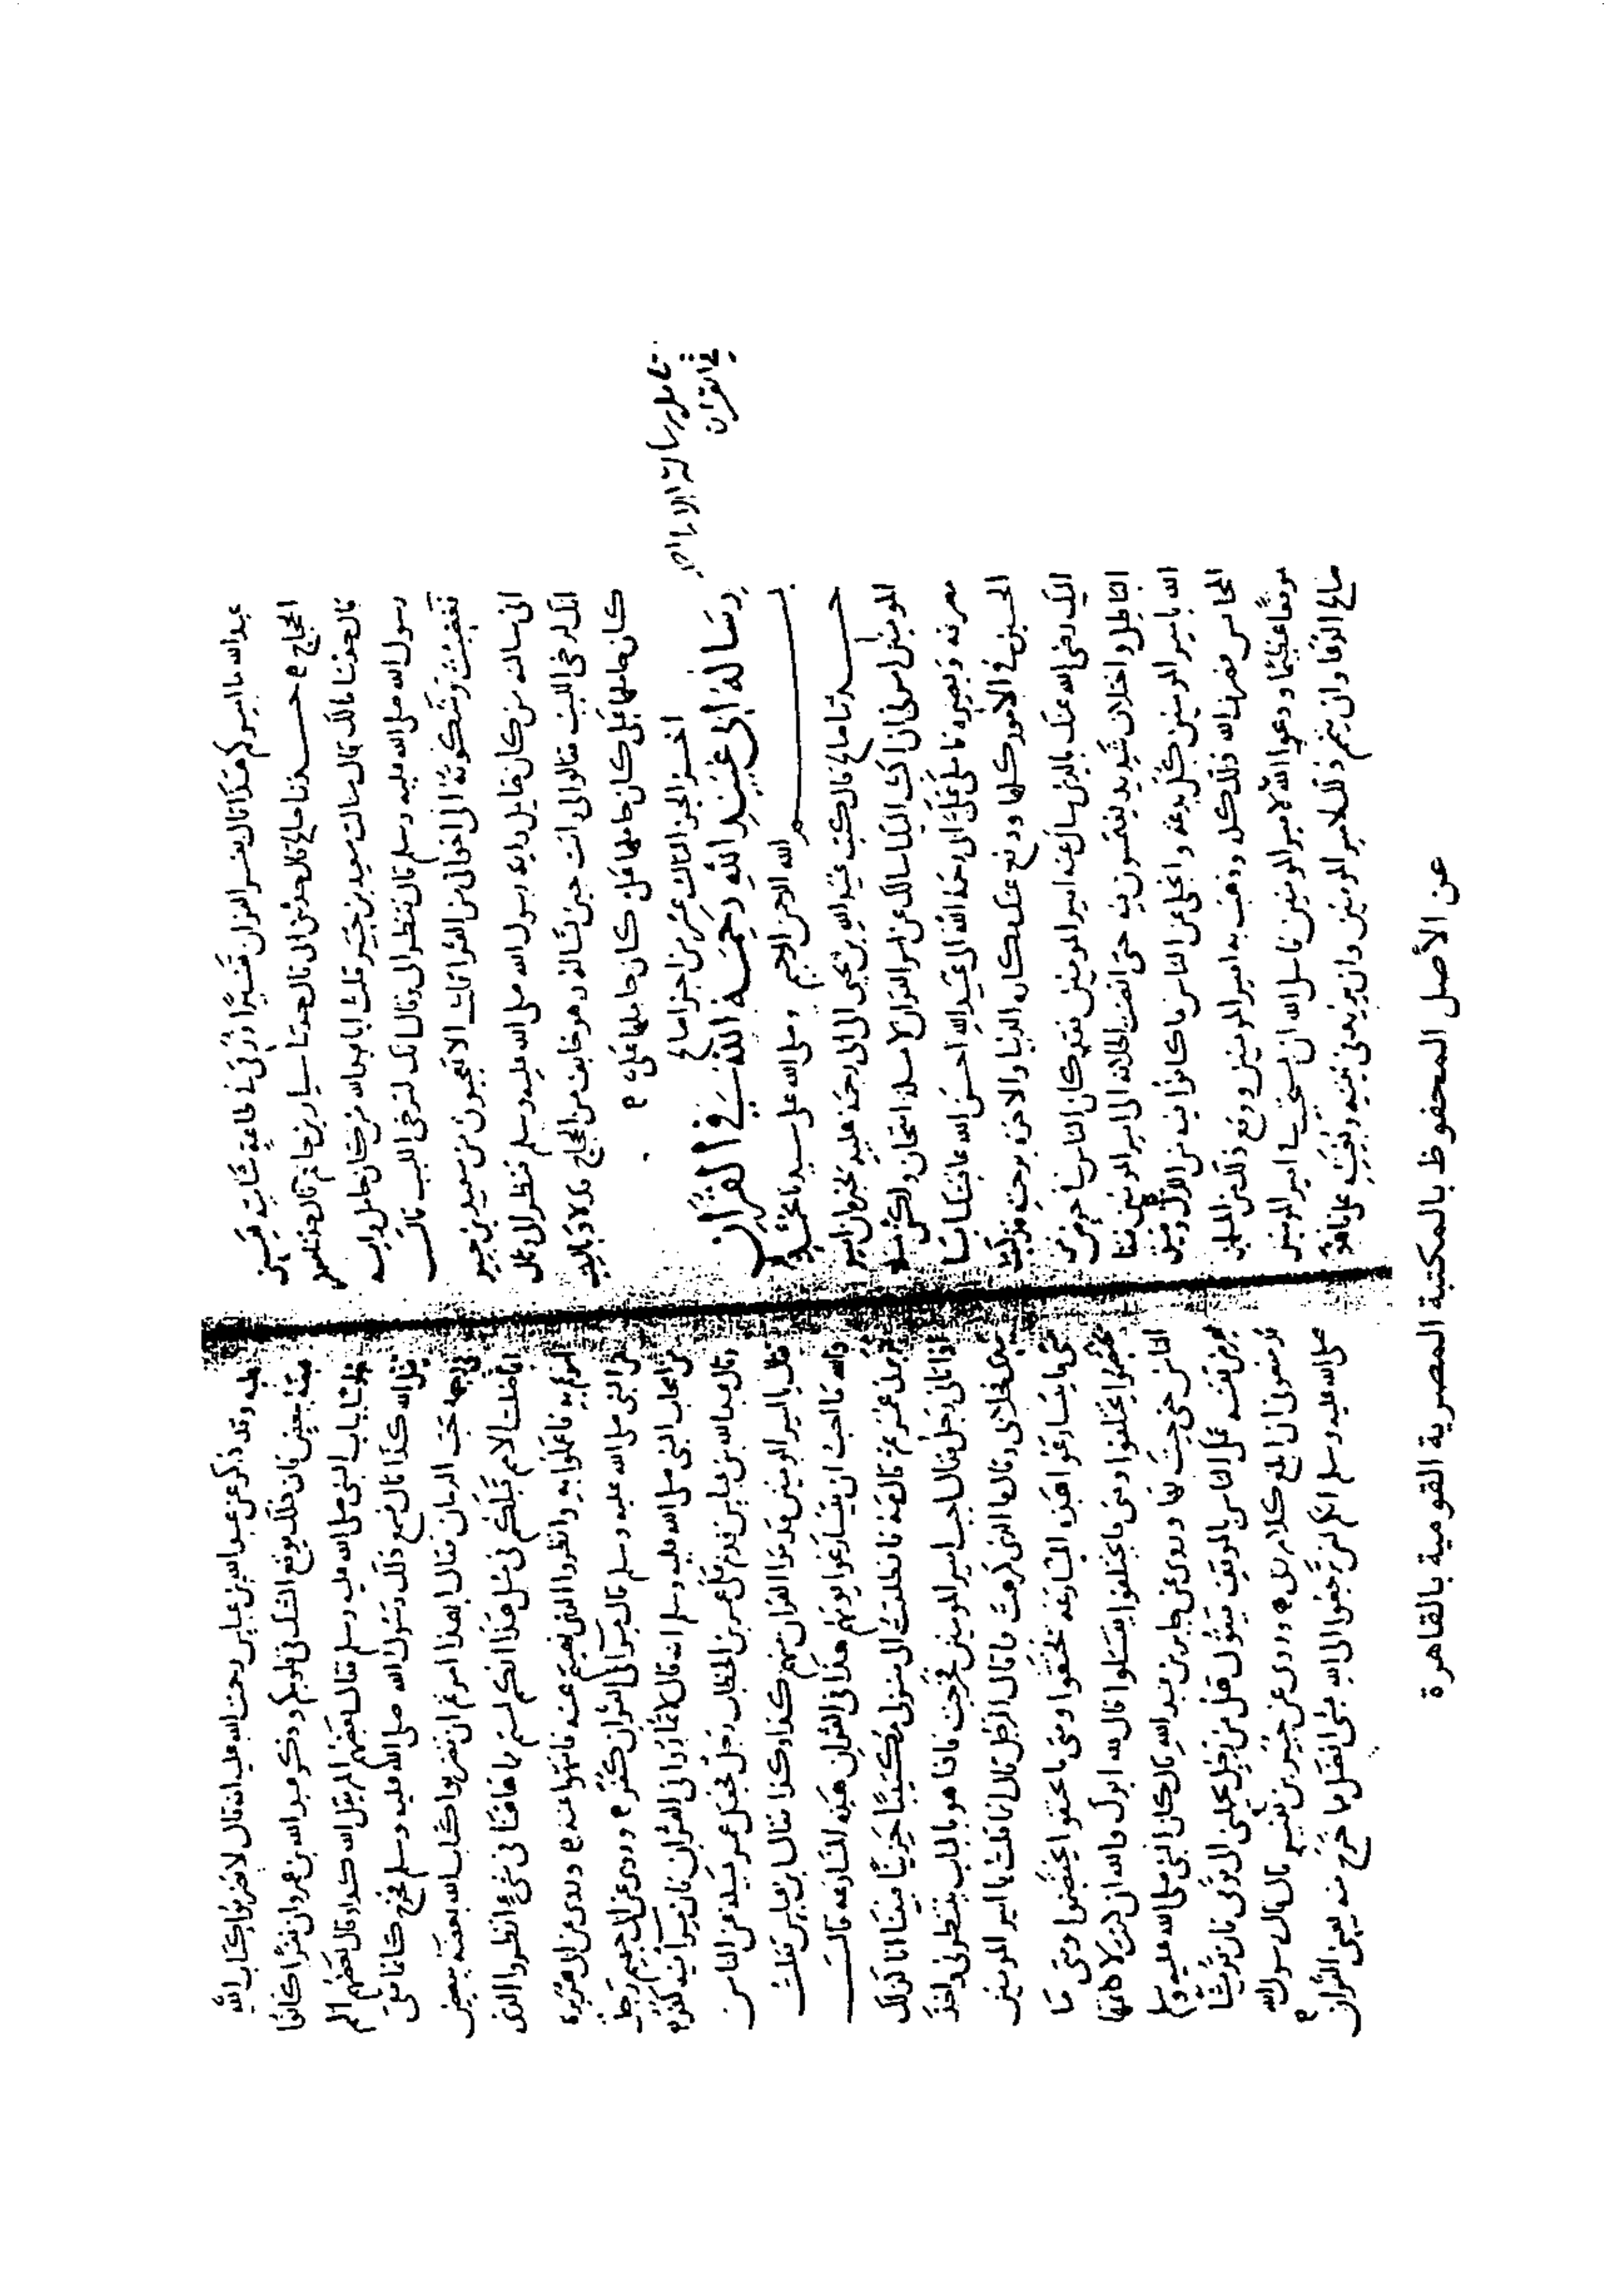 عبدالله ما
الحجاج ه حدثنا صالح قال حدثني ابي قال حدثنا سيار بن حاتم قال حدثنا جعفر
قال حدثنا مالك قال سالت سعيد بن جبير قلت ابا عبدالله من كان حامل راية
رسول الله صلى الله عليه وسلم قال فنظر الي وقال انك لرخي اللبب قال
فغضبت وشكوته الى اخواني من القرا قلت الا تعجبون من سعيد بن جبير
اني سالته من كان حامل راية رسول الله صلى الله عليه وسلم فنظر الي وقال
انك لرخي اللبب قالوا لي وانت حين تساله وهو خايف من الحجاج قد لاذ بالبيت
كان حاملها علي كان حاملها علي كان حاملها علي ه
اخر الجز الثالث عشر من اجزا صالح
رسالته الى عبيد الله رحمه الله في القران
تامل رسالة الامام احمد
في القران
بسم الله الرحمن الرحيم وصلى الله على سيدنا محمد
حدثنا صالح قال كتب عبيد الله بن يحيى الى ابي رحمة عليه يخبره ان امير
المومنين امرني ان اكتب اليك اسالك عن امر القران لا مسلة امتحان ولكن مسلة
معرفة وبصيرة فاملى علي ابي رحمه الله الى عبيد الله احسن الله عاقبتك ابا
الحسن في الامور كلها ودفع عنك مكاره الدنيا والاخرة برحمته قد كتبت
اليك رضي الله عنك بالذي سال عنه امير المومنين فقد كان الناس في خوض من
الباطل واختلاف شديد ينغمسون فيه حتى افضت الخلافة الى امير المومنين فنفا
الله بامير المومنين كل بدعة وانجلى عن الناس ما كانوا فيه من الذل وضيق
المحابس فصرف الله ذلك كله وذهب به امير المومنين ووقع ذلك من المسلمين
موقعا عظيما ودعوا الله لامير المومنين فاسل الله ان يستجيب في امير المومنين
صالح الدعا وان يتم ذلك لامير المومنين وان يزيد في نيته ويعينه على ما هو
عليه وقد ذكر عن عبدالله بن عباس رحمت الله عليه انه قال لا تضربوا كتاب الله
بعضه ببعض فان ذلك يوقع الشك في قلوبكم وذكر عبد الله بن عمرو ان نفرا كانوا
جلوسا بباب النبي صلى الله عليه وسلم فقال بعضهم الم يقل الله كذا وقال بعضهم الم
يقل الله كذا قال فسمع ذلك رسول الله صلى الله عليه وسلم فخرج كانما فقي
في وجهه حب الرمان فقال ابهذا امرتم ان تضربوا كتاب الله بعضه ببعض
انما ضلت الامم قبلكم في مثل هذا انكم لستم مما هاهنا في شي انظروا الذي
امرتم به فاعملوا به وانظروا الذي نهيتم عنه فانتهوا عنه ه وروي عن ابي هريرة
عن النبي صلى الله عليه وسلم قال مرا في القران كفر ه وروي عن ابي جهيم رجل
من اصحاب النبي صلى الله عليه وسلم انه قال لا تماروا في القران فان مرا فيه كفر ه
وقال عبدالله بن عباس قدم على عمر بن الخطاب رجل فجعل عمر يسله عن الناس
فقال يا امير المومنين قد قرا القران منهم كذا وكذا فقال ابن عباس فقلت
والله ما احب ان يتسارعوا يومهم هذا في القران هذه المسارعة قال
فزبرني عمر ثم قال مه فانطلقت الى منزلي مكتيبا حزينا فبينا انا كذلك
اذ اتاني رجل فقال اجب امير المومنين فخرجت فاذا هو بالباب ينتظرني فاخذ
بيدي فخلا بي وقال ما الذي كرهت مما قال الرجل قال انفا قلت يا امير المومنين
متى ما يتسارعوا هذه المسارعة يحتقوا ومتى ما يحتقوا يختصموا ومتى ما
يختصموا يختلفوا ومتى ما يختلفوا يقتتلوا قال لله ابوك والله ان كنت لاكتمها
الناس حتى جيت بها وروي عن جابر بن عبدالله قال كان النبي صلى الله عليه وسلم
يعرض نفسه على الناس بالموقف فيقول هل من رجل يحملني الى قومه فان قريشا
قد منعوني ان ابلغ كلام ربي ه وروي عن جبير بن نفير قال قال رسول الله
صلى الله عليه وسلم انكم لن ترجعوا الى الله بشي افضل مما خرج منه يعني القران ه
عن الأصل المحفوظ بالمكتبة المصرية القومية بالقاهرة